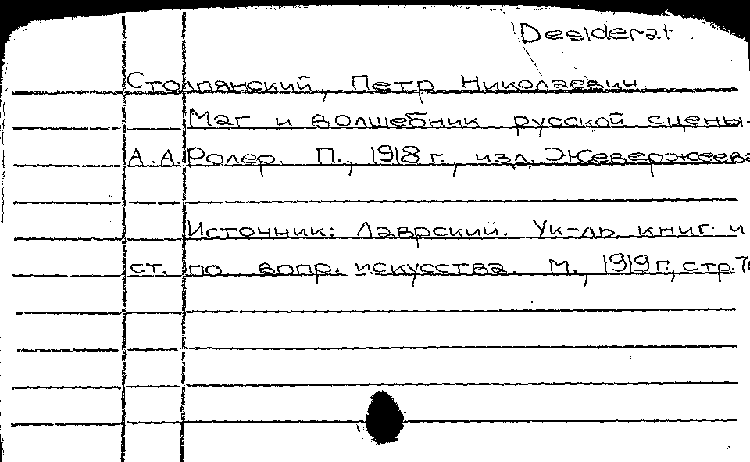 Desiderat
Столпянский, Петр Николаевич
Маг и волшебник русской сцены.
А.А.Ролер. П., 1918 г., изд. Жевержеева
Источник: Лаврский. Ук-ль книг и
ст. по вопр. искусства. М., 1919 г., стр.